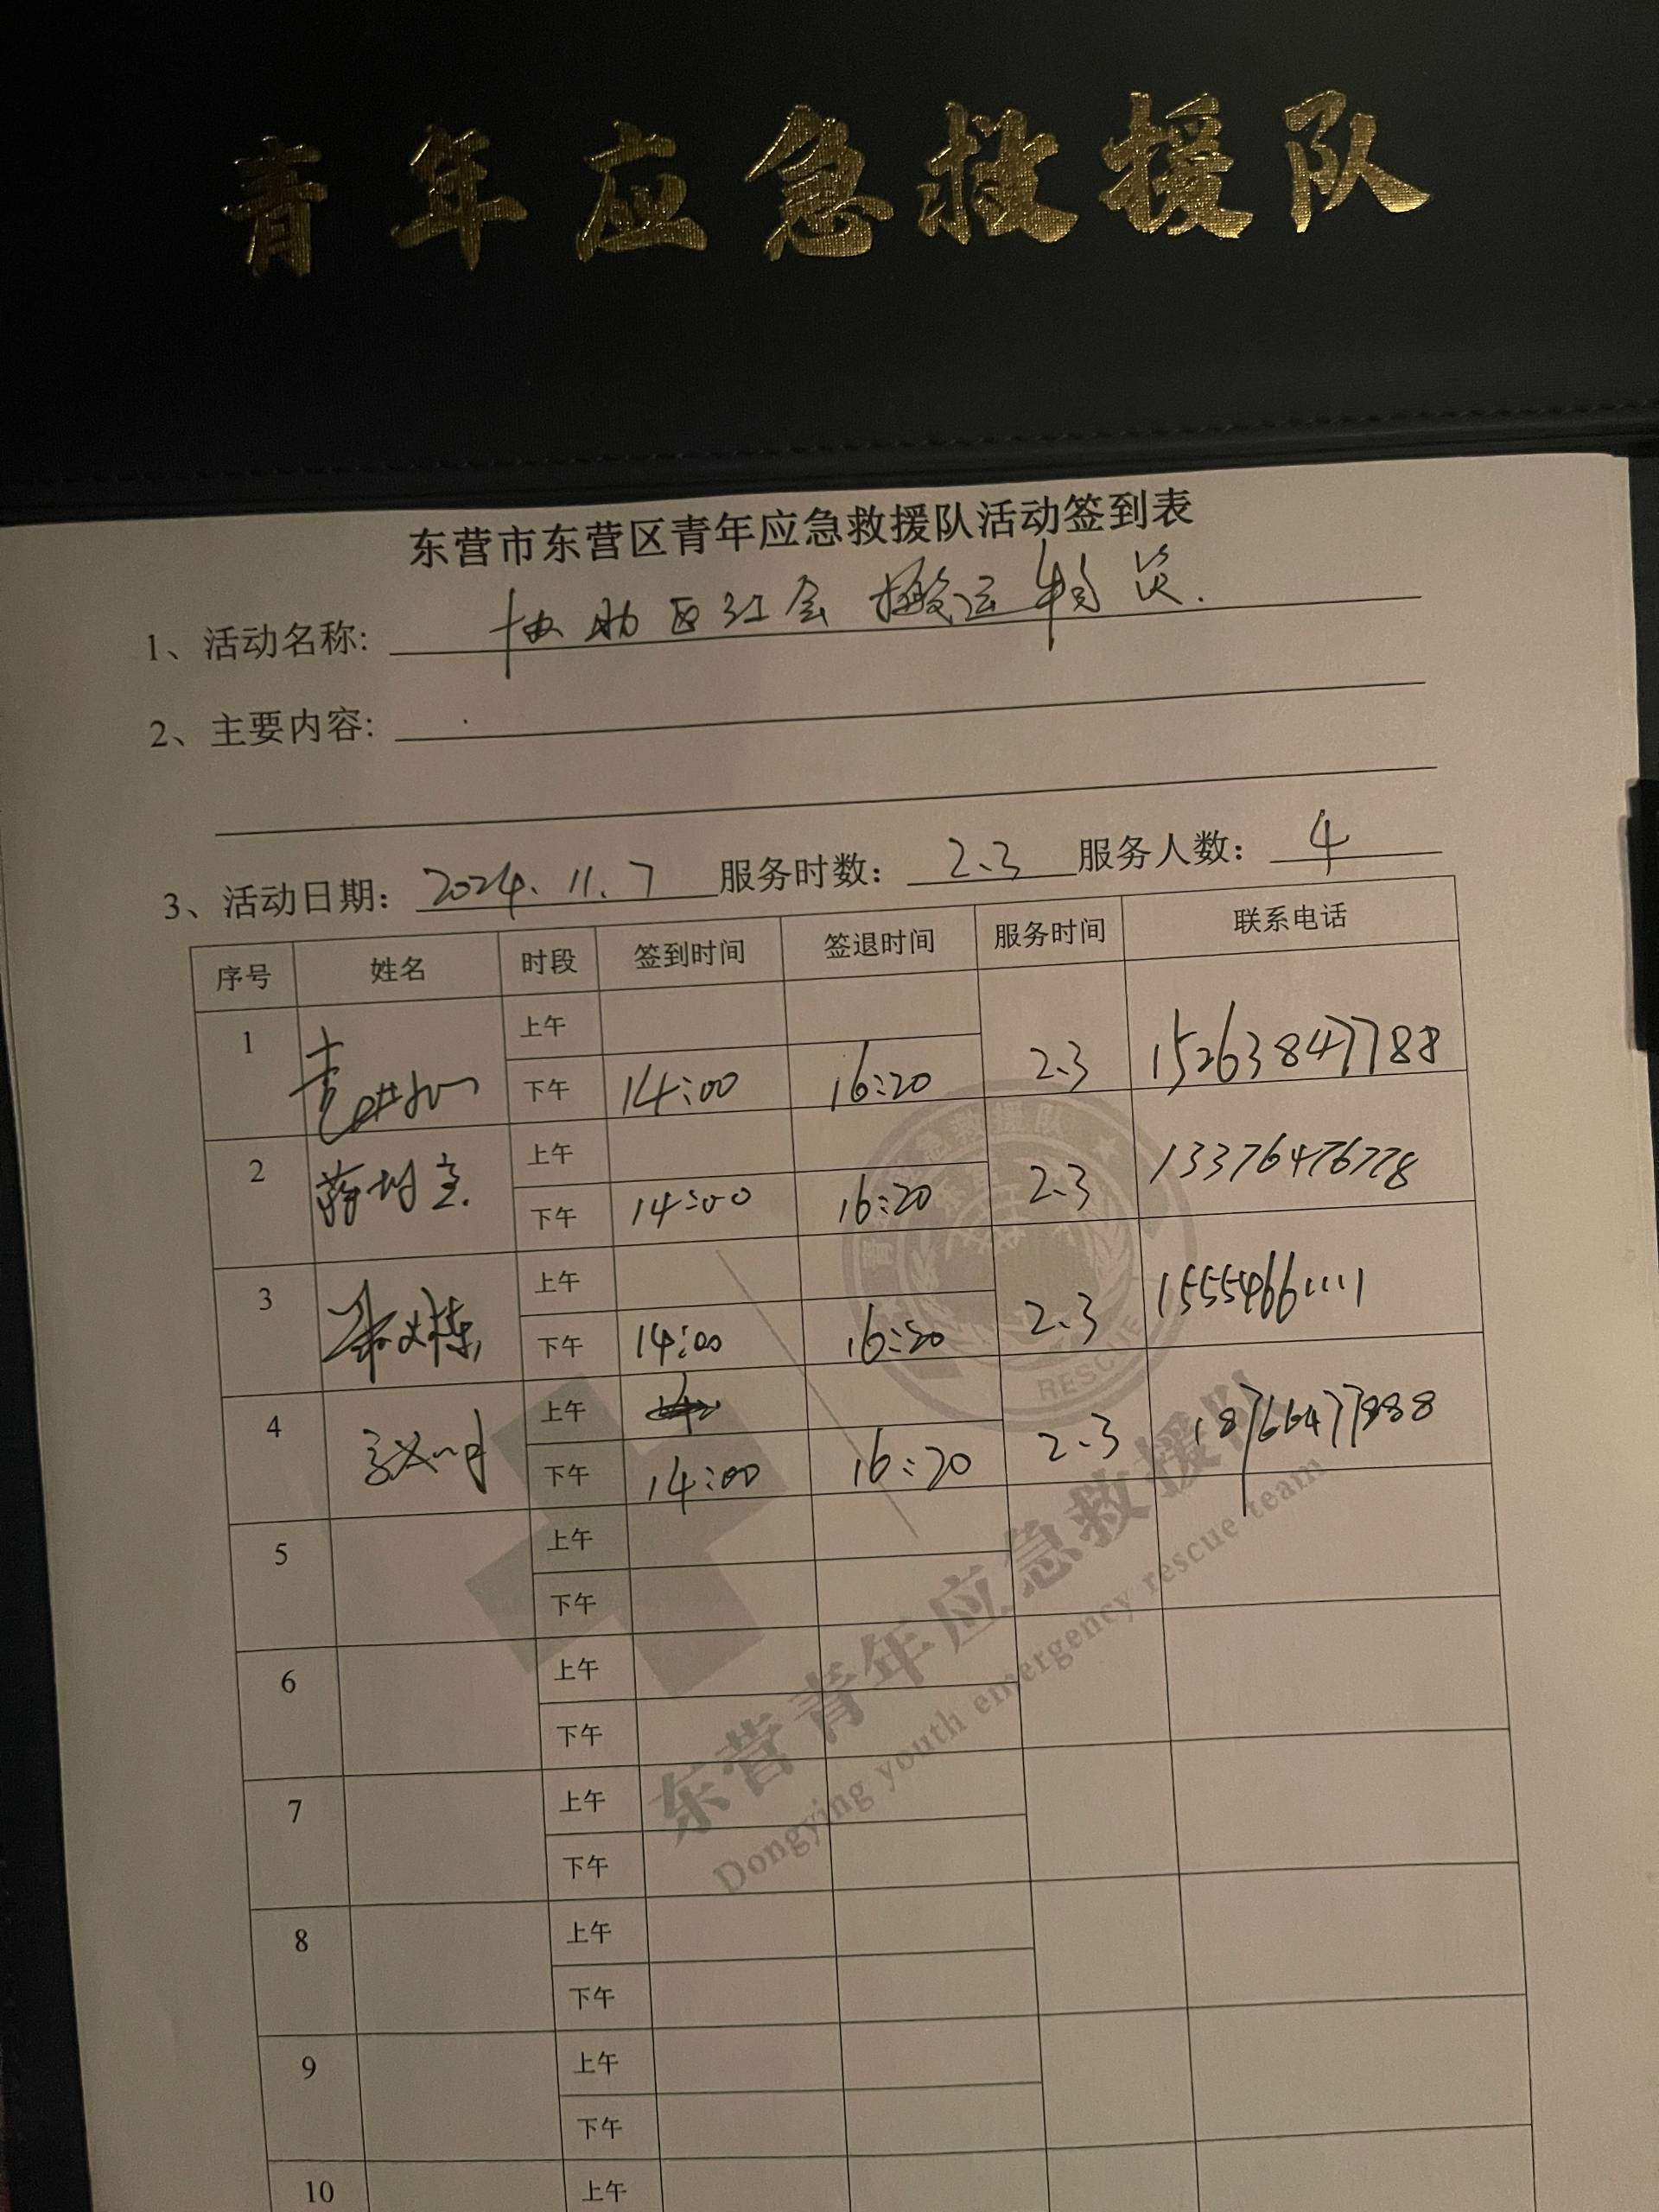 青年应急救援队
东营市东营区青年应急救援队活动签到表
1、活动名称: 协助区红会搬运物资.
2、主要内容:
3、活动日期: 2024.11.7 服务时数: 2.3 服务人数: 4
序号 姓名 时段 签到时间 签退时间 服务时间 联系电话
1 上午
下午 14:00 16:20 2.3 15263847788
2 上午
下午 14:00 16:20 2.3 13376476778
3 上午
下午 14:00 16:20 2.3 15554661111
4 上午
下午 14:00 16:20 2.3 18766477888
5 上午
下午
6 上午
下午
7 上午
下午
8 上午
下午
9 上午
下午
10 上午
RESCUE
东营青年应急救援队
Dongying youth emergency rescue team